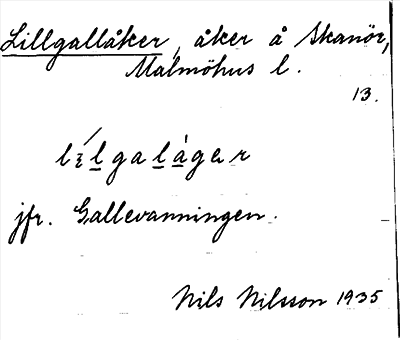 Lillgallåker, åker å Skanör,
Malmöhus l.
13.
lílgalàger
jfr. Gallevanningen.
Nils Nilsson 1935